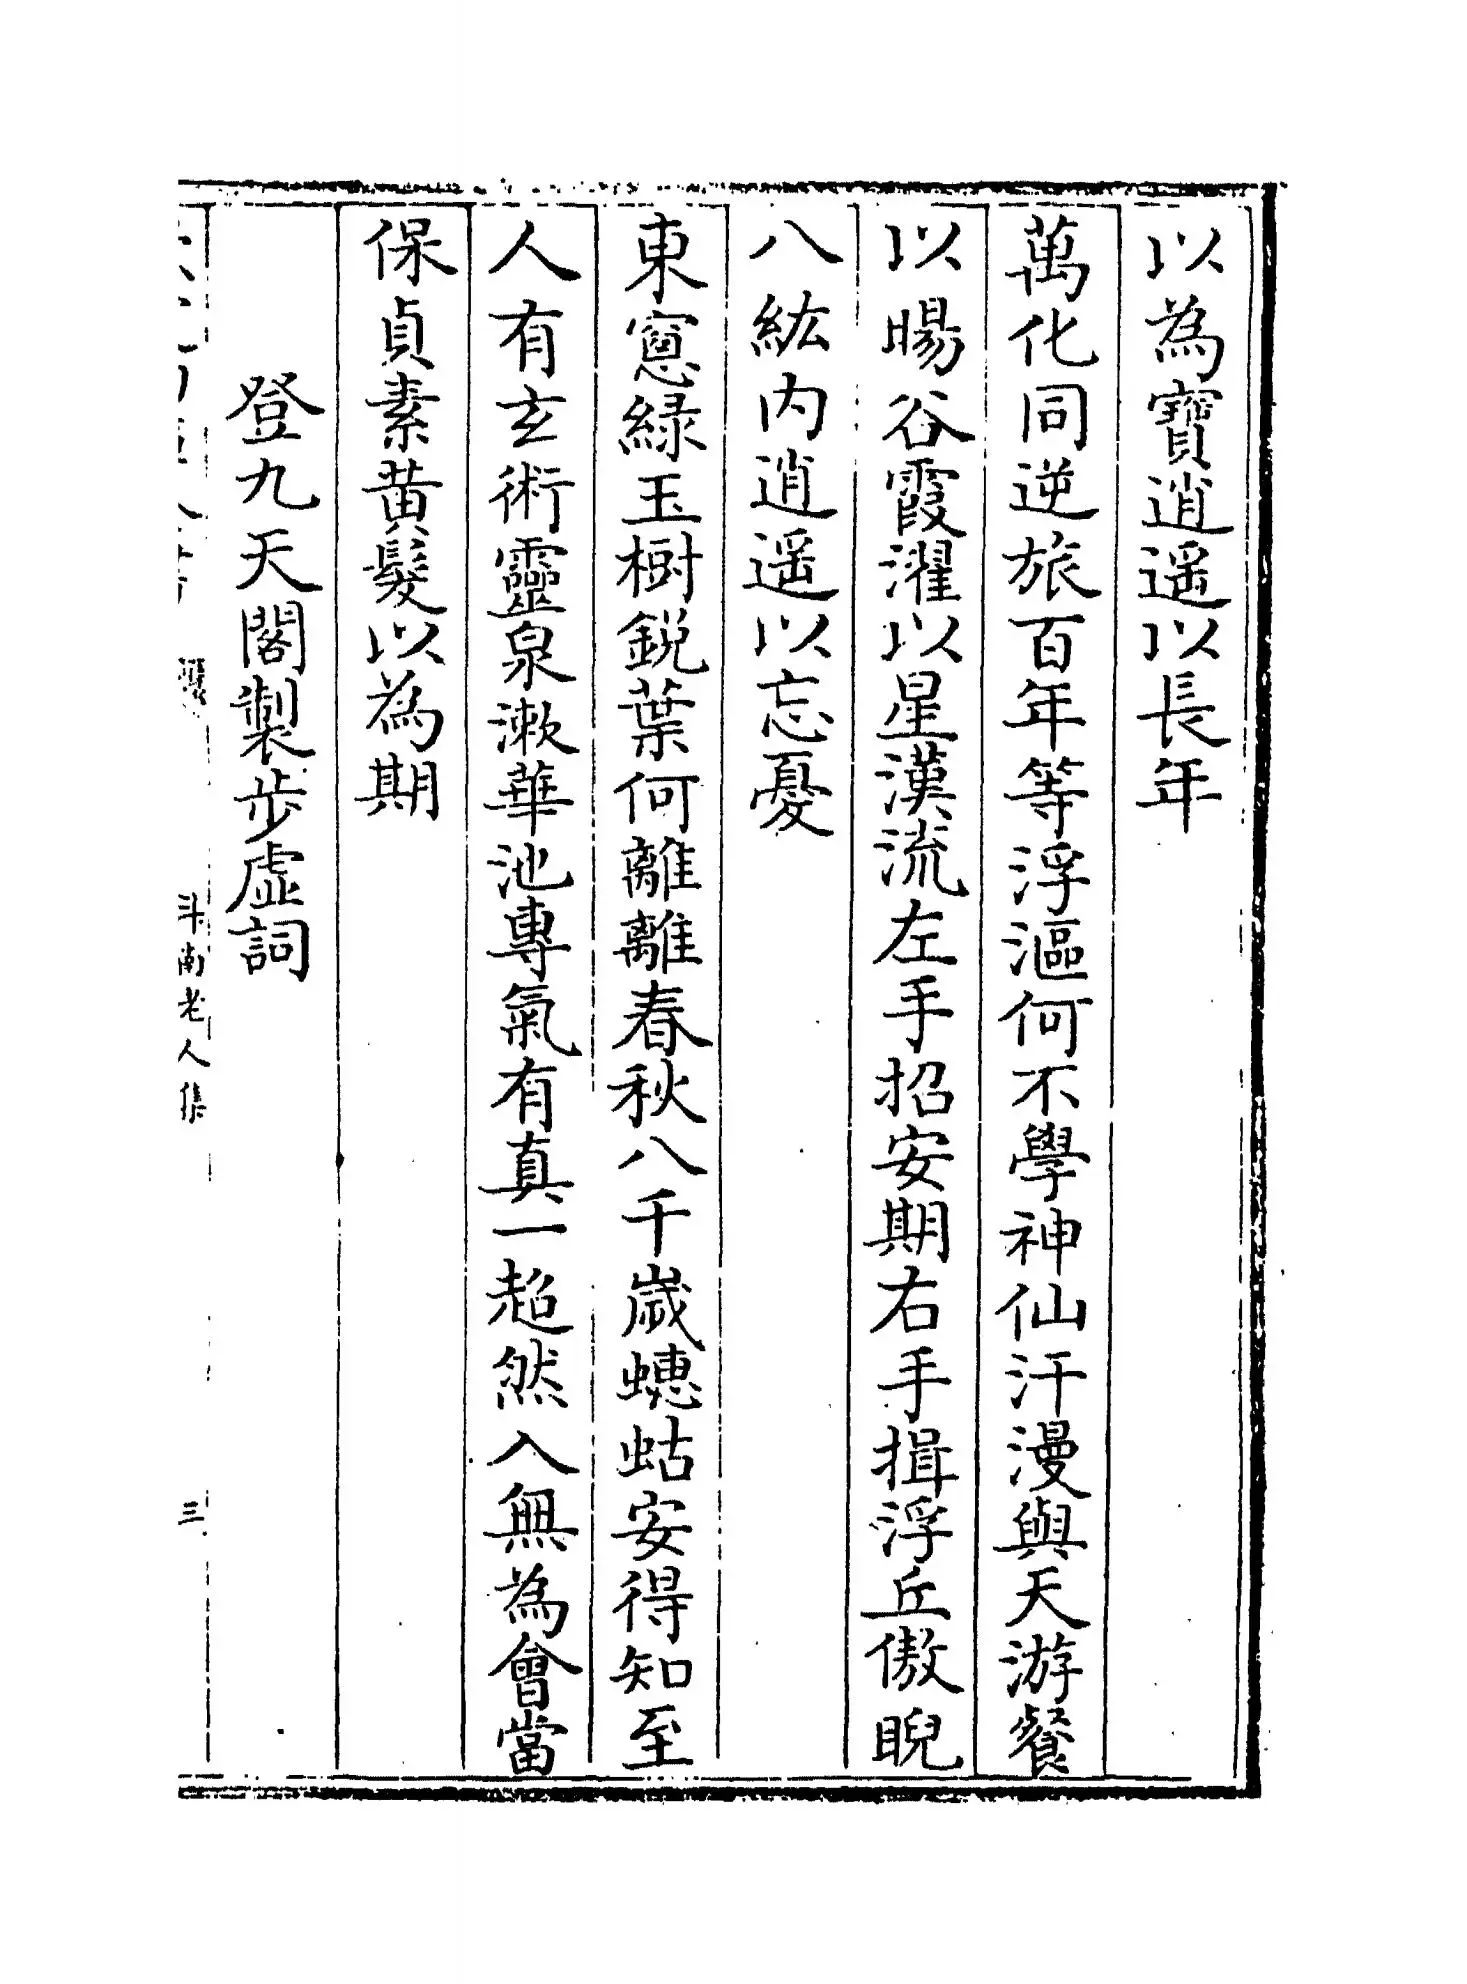 以為寶逍遥以長年
萬化同逆旅百年等浮漚何不學神仙汗漫與天游餐
以暘谷霞濯以星漢流左手招安期右手揖浮丘傲睨
八紘内逍遥以忘憂
東窻緑玉樹鋭葉何離離春秋八千嵗蟪蛄安得知至
人有玄術靈泉漱華池專氣有真一超然入無為會當
保貞素黄髮以為期
登九天閣製步虚詞
斗南老人集
三